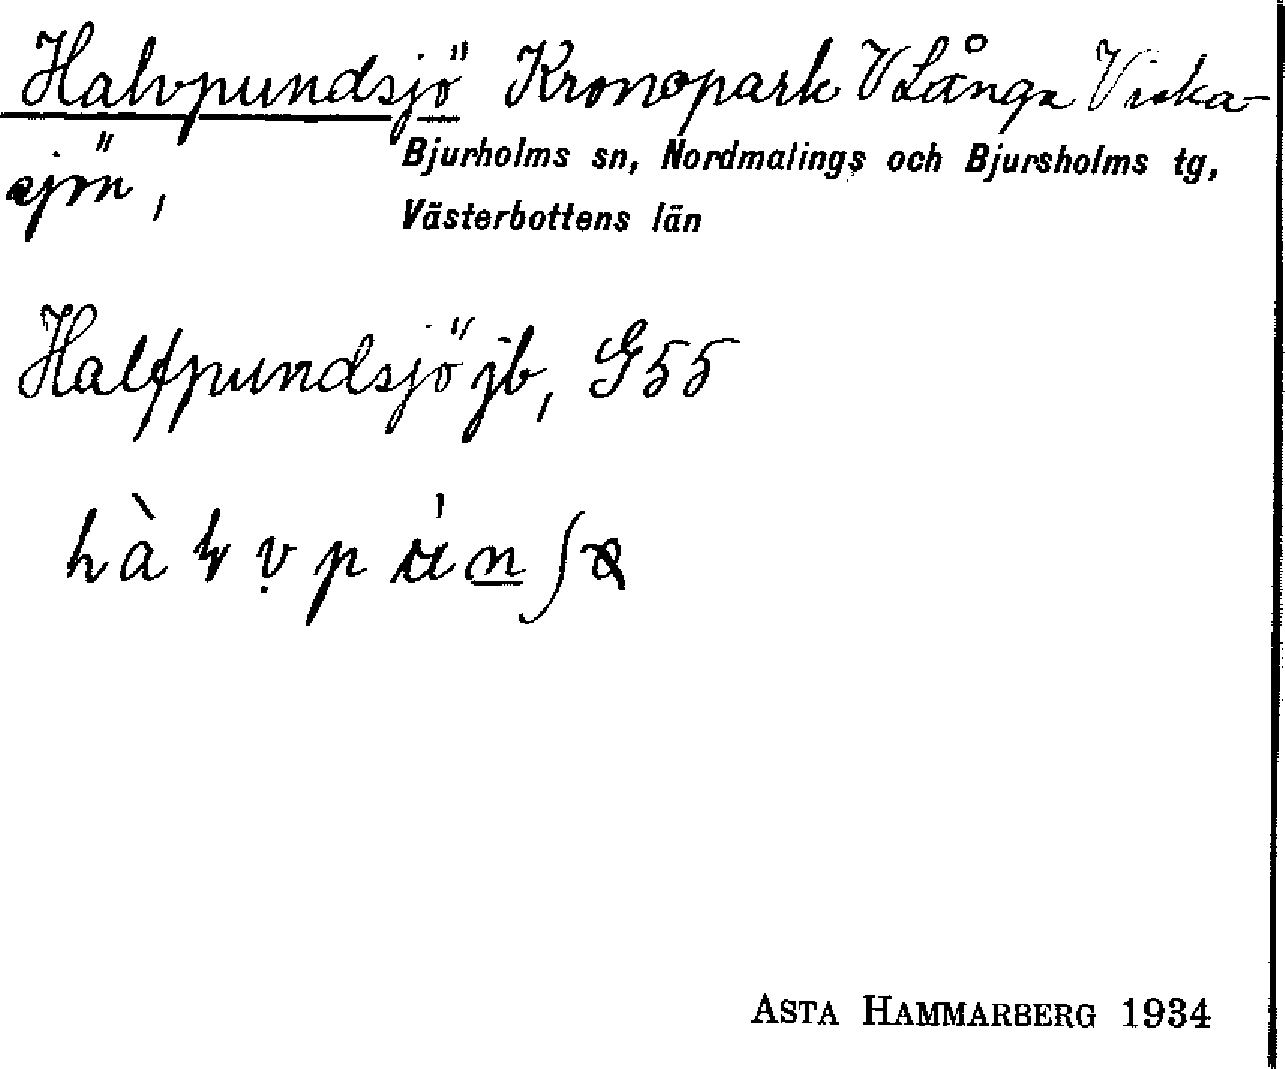 Halvpundsjö Kronopark V Långa Viska-
sjön,
Bjurholms sn, Nordmalings och Bjursholms tg,
Västerbottens län
Halfpundsjö jb, G55
Asta Hammarberg 1934